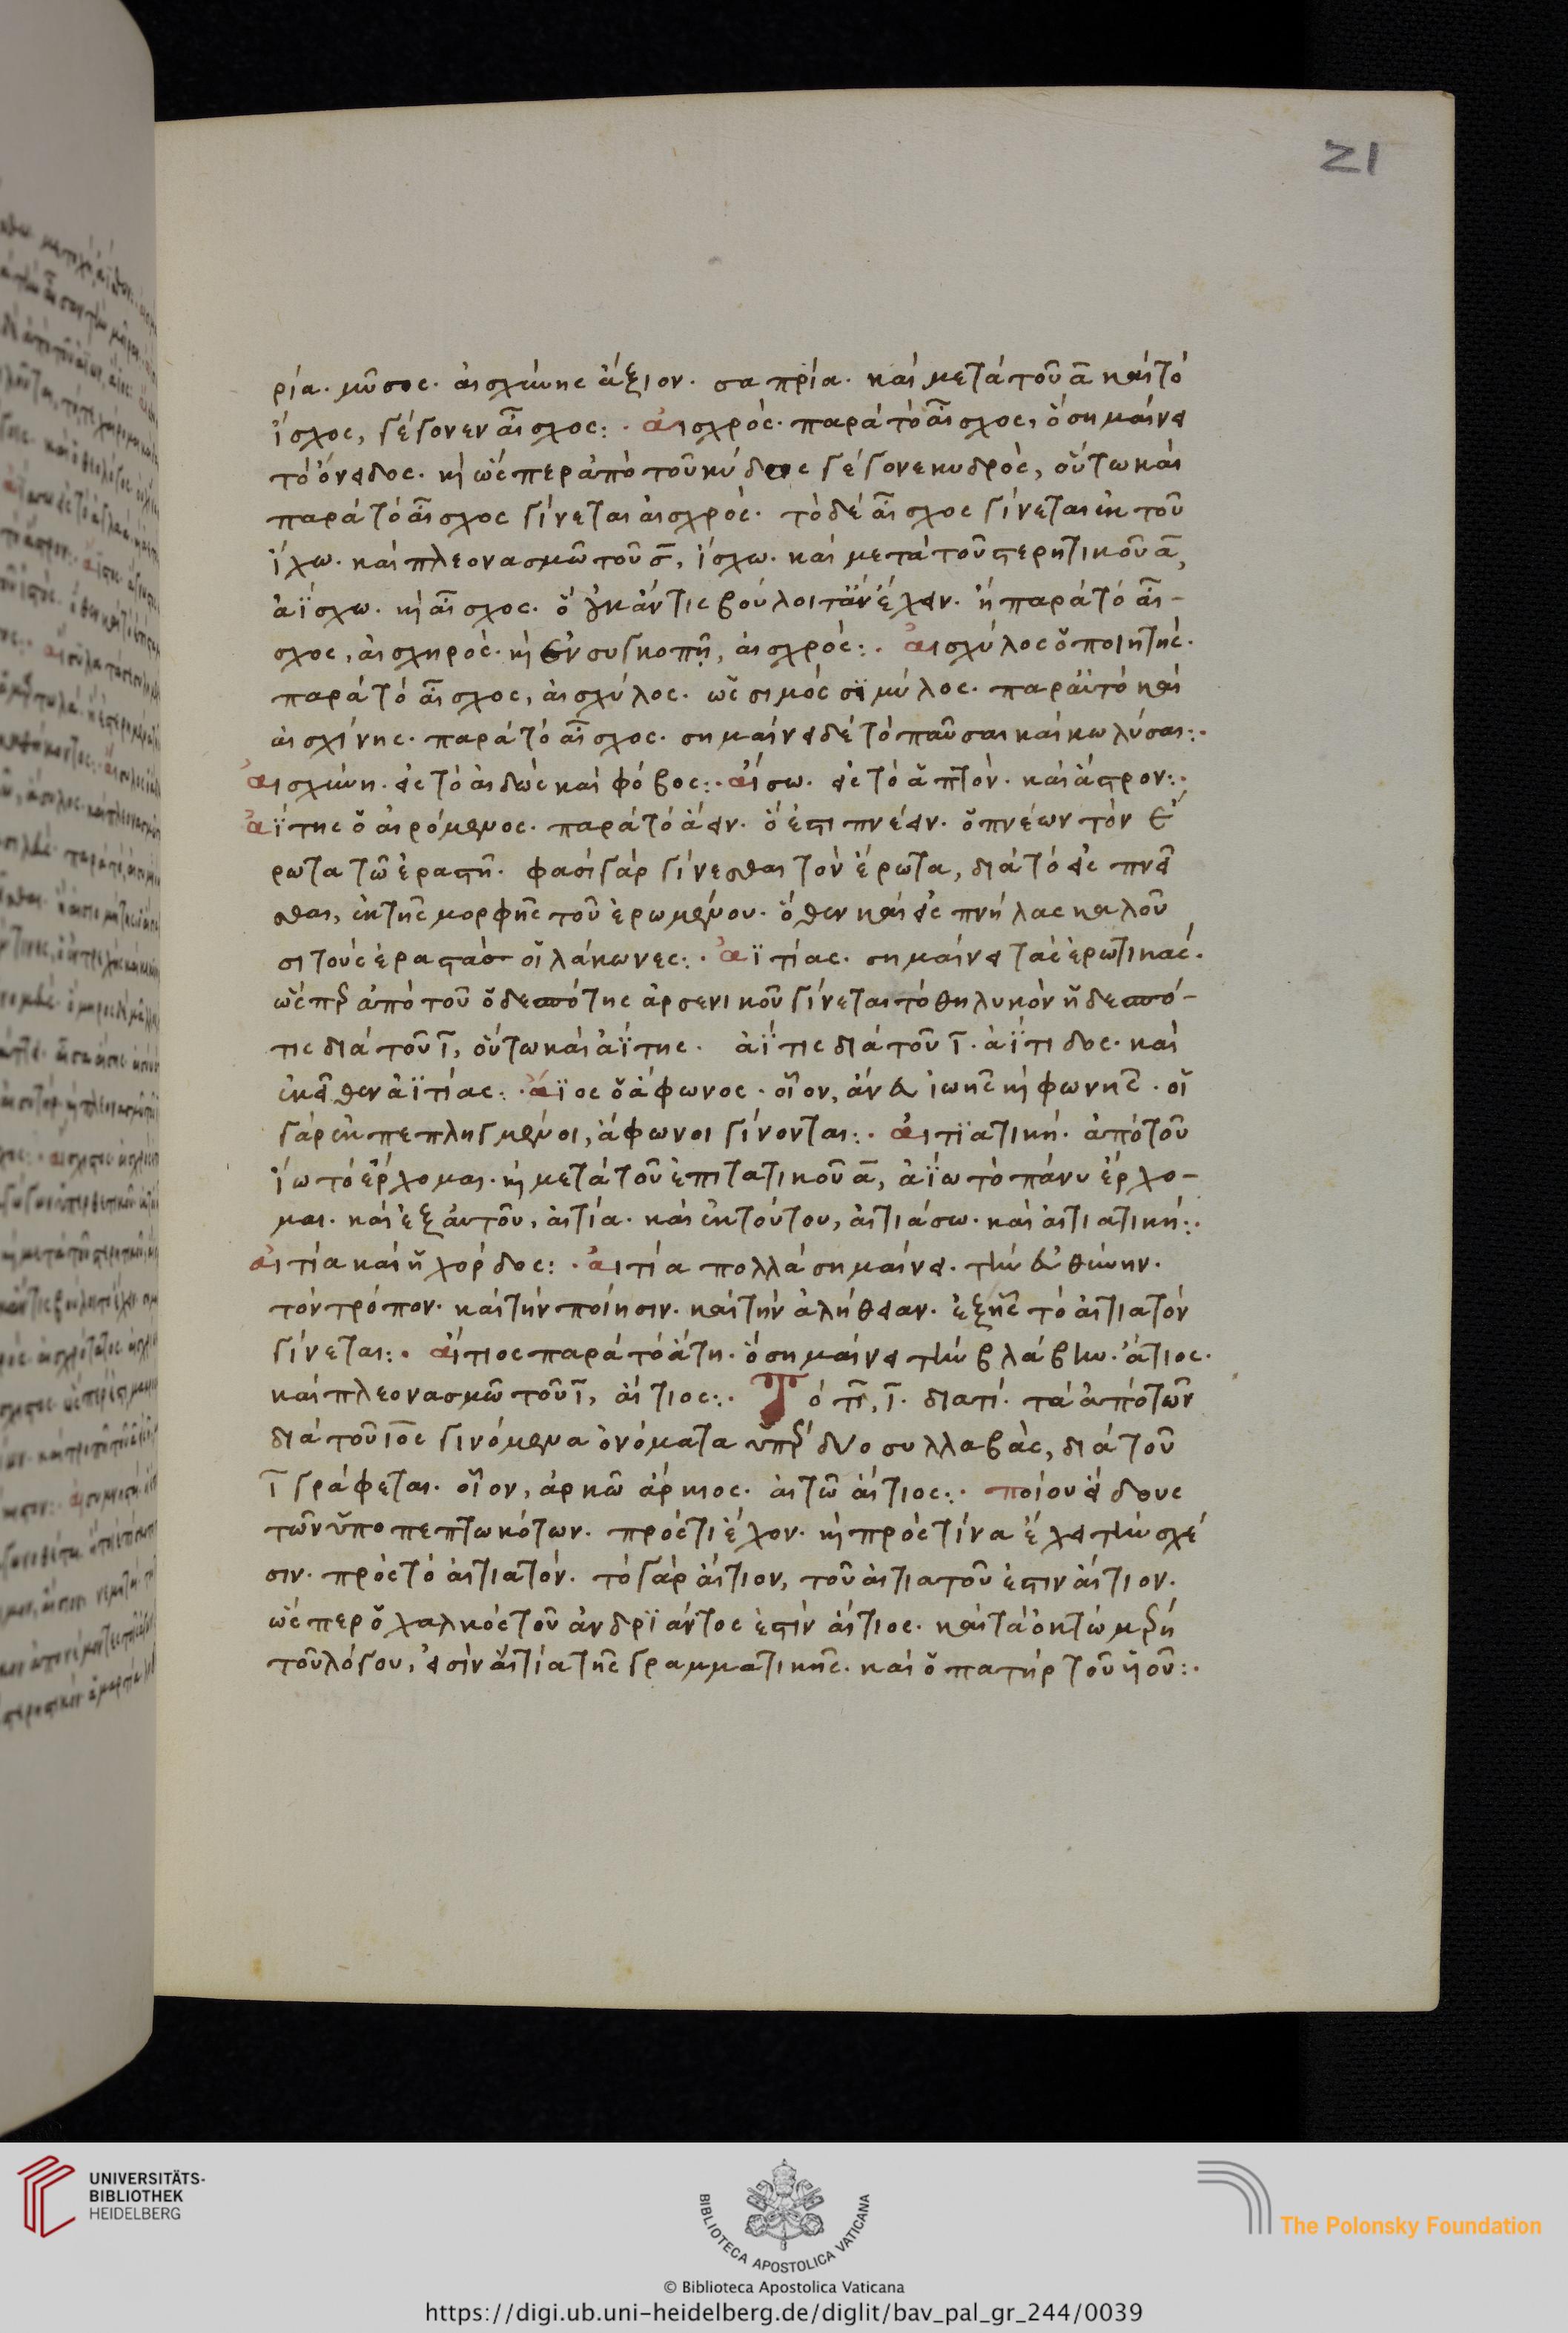 21
ρία· μῦσος· αἰσχύνης ἄξιον· σαπρία· καὶ μετὰ τοῦ ᾱ καὶ τὸ
ἴσχος, γέγονεν αἶσχος:· αἰσχρός· παρὰ τὸ αἶσχος, ὃ σημαίνει
τὸ ὄνειδος· κὴ ὥσπερ ἀπὸ τοῦ κύδος γέγονε κυδρὸς, οὕτω καὶ
παρὰ τὸ αἶσχος γίνεται αἰσχρός· τὸ δὲ αἶσχος γίνεται ἐκ τοῦ
ἴχω· καὶ πλεονασμῶ τοῦ σ̄, ἴσχω· καὶ μετὰ τοῦ στερητικοῦ ᾱ,
ἀΐσχω· κὴ αἶσχος· ὃ οὐκ ἄν τις βούλοιτ' ἂν ἔχειν· ἢ παρὰ τὸ αἶ-
σχος, αἰσχηρός· κὴ ἐν συγκοπῆ, αἰσχρός:· αἰσχύλος ὁ ποιητής·
παρὰ τὸ αἶσχος, αἰσχύλος· ὡς σιμός σϊμύλος· παρὰ τὸ καὶ
αἰσχίνης· παρὰ τὸ αἶσχος· σημαίνει δὲ τὸ παῦσαι καὶ κωλύσαι:·
αἰσχύνη· εἰς τὸ αἰδὼς καὶ φόβος:· αἴσω· εἰς τὸ ἄπτον· καὶ ἄστρον:·
ἀΐτης ὁ αἰρόμενος· παρὰ τὸ ἄειν· ὅ ἐστι πνέειν· ὁ πνέων τὸν ἔ
ρωτα τῶ ἐραστῆ· φασὶ γὰρ γίνεσθαι τὸν ἔρωτα, διὰ τὸ εἰσπνεῖ
σθαι, ἐκ τῆς μορφῆς τοῦ ἐρωμένου· ὅθεν καὶ εἰσπνήλας καλοῦ
σι τοὺς ἐραστὰσ οἱ λάκωνες:· ἀϊτίας· σημαίνει τὰς ἐρωτικάς·
ὥσπερ ἀπὸ τοῦ ὁ δεσπότης ἀρσενικοῦ γίνεται τὸ θηλυκὸν ἡ δεσπό-
τις διὰ τοῦ ῑ, οὕτω καὶ ἀΐτης· ἀΐτις διὰ τοῦ ῑ· ἀΐτιδος· καὶ
ἐκεῖθεν ἀϊτίας:· ἄϊος ὁ ἄφωνος· οἷον, ἄνευ ἰωῆς κὴ φωνῆς· οἱ
γὰρ ἐκπεπληγμένοι, ἄφωνοι γίνονται:· αἰτϊατική· ἀπὸ τοῦ
ἴω τὸ ἔρχομαι· κὴ μετὰ τοῦ ἐπιτατικοῦ ᾱ, ἀΐω τὸ πάνυ ἔρχο-
μαι· καὶ ἐξ αὐτοῦ, αἰτία· καὶ ἐκ τούτου, αἰτιάσω· καὶ αἰτιατική:·
αἰτία καὶ ἡ χόρδος:· αἰτία πολλὰ σημαίνει· τὴν εὐθύνην·
τὸν τρόπον· καὶ τὴν ποίησιν· καὶ τὴν ἀλήθειαν· ἐξ ἧς τὸ αἰτιατὸν
γίνεται:· αἴτιος παρὰ τὸ ἄτη· ὃ σημαίνει τὴν βλάβην· ἄτιος·
καὶ πλεονασμῶ τοῦ ῑ, αἴτιος:· Τὸ τῑ, ῑ· διατί· τὰ ἀπὸ τῶν
διὰ τοῦ ῑος γινόμενα ὀνόματα ὑπὲρ δύο συλλαβὰς, διὰ τοῦ
ῑ γράφεται· οἷον, ἀρκῶ ἄρκιος· αἰτῶ αἴτιος:· ποίου εἴδους
τῶν ὑποπεπτωκότων· πρός τι ἔχον· κὴ πρὸς τίνα ἔχει τὴν σχέ
σιν· πρὸς τὸ αἰτιατόν· τὸ γὰρ αἴτιον, τοῦ αἰτιατοῦ ἐστιν αἴτιον·
ὥσπερ ὁ χαλκὸς τοῦ ἀνδρϊάντος ἐστὶν αἴτιος· καὶ τὰ ὀκτὼ μέρη
τοῦ λόγου, εἰσὶν αἰτία τῆς γραμματικῆς· καὶ ὁ πατὴρ τοῦ ὑιοῦ:·
UNIVERSITÄTS-
BIBLIOTHEK
HEIDELBERG
BIBLIOTECA APOSTOLICA VATICANA
The Polonsky Foundation
© Biblioteca Apostolica Vaticana
https://digi.ub.uni-heidelberg.de/diglit/bav_pal_gr_244/0039